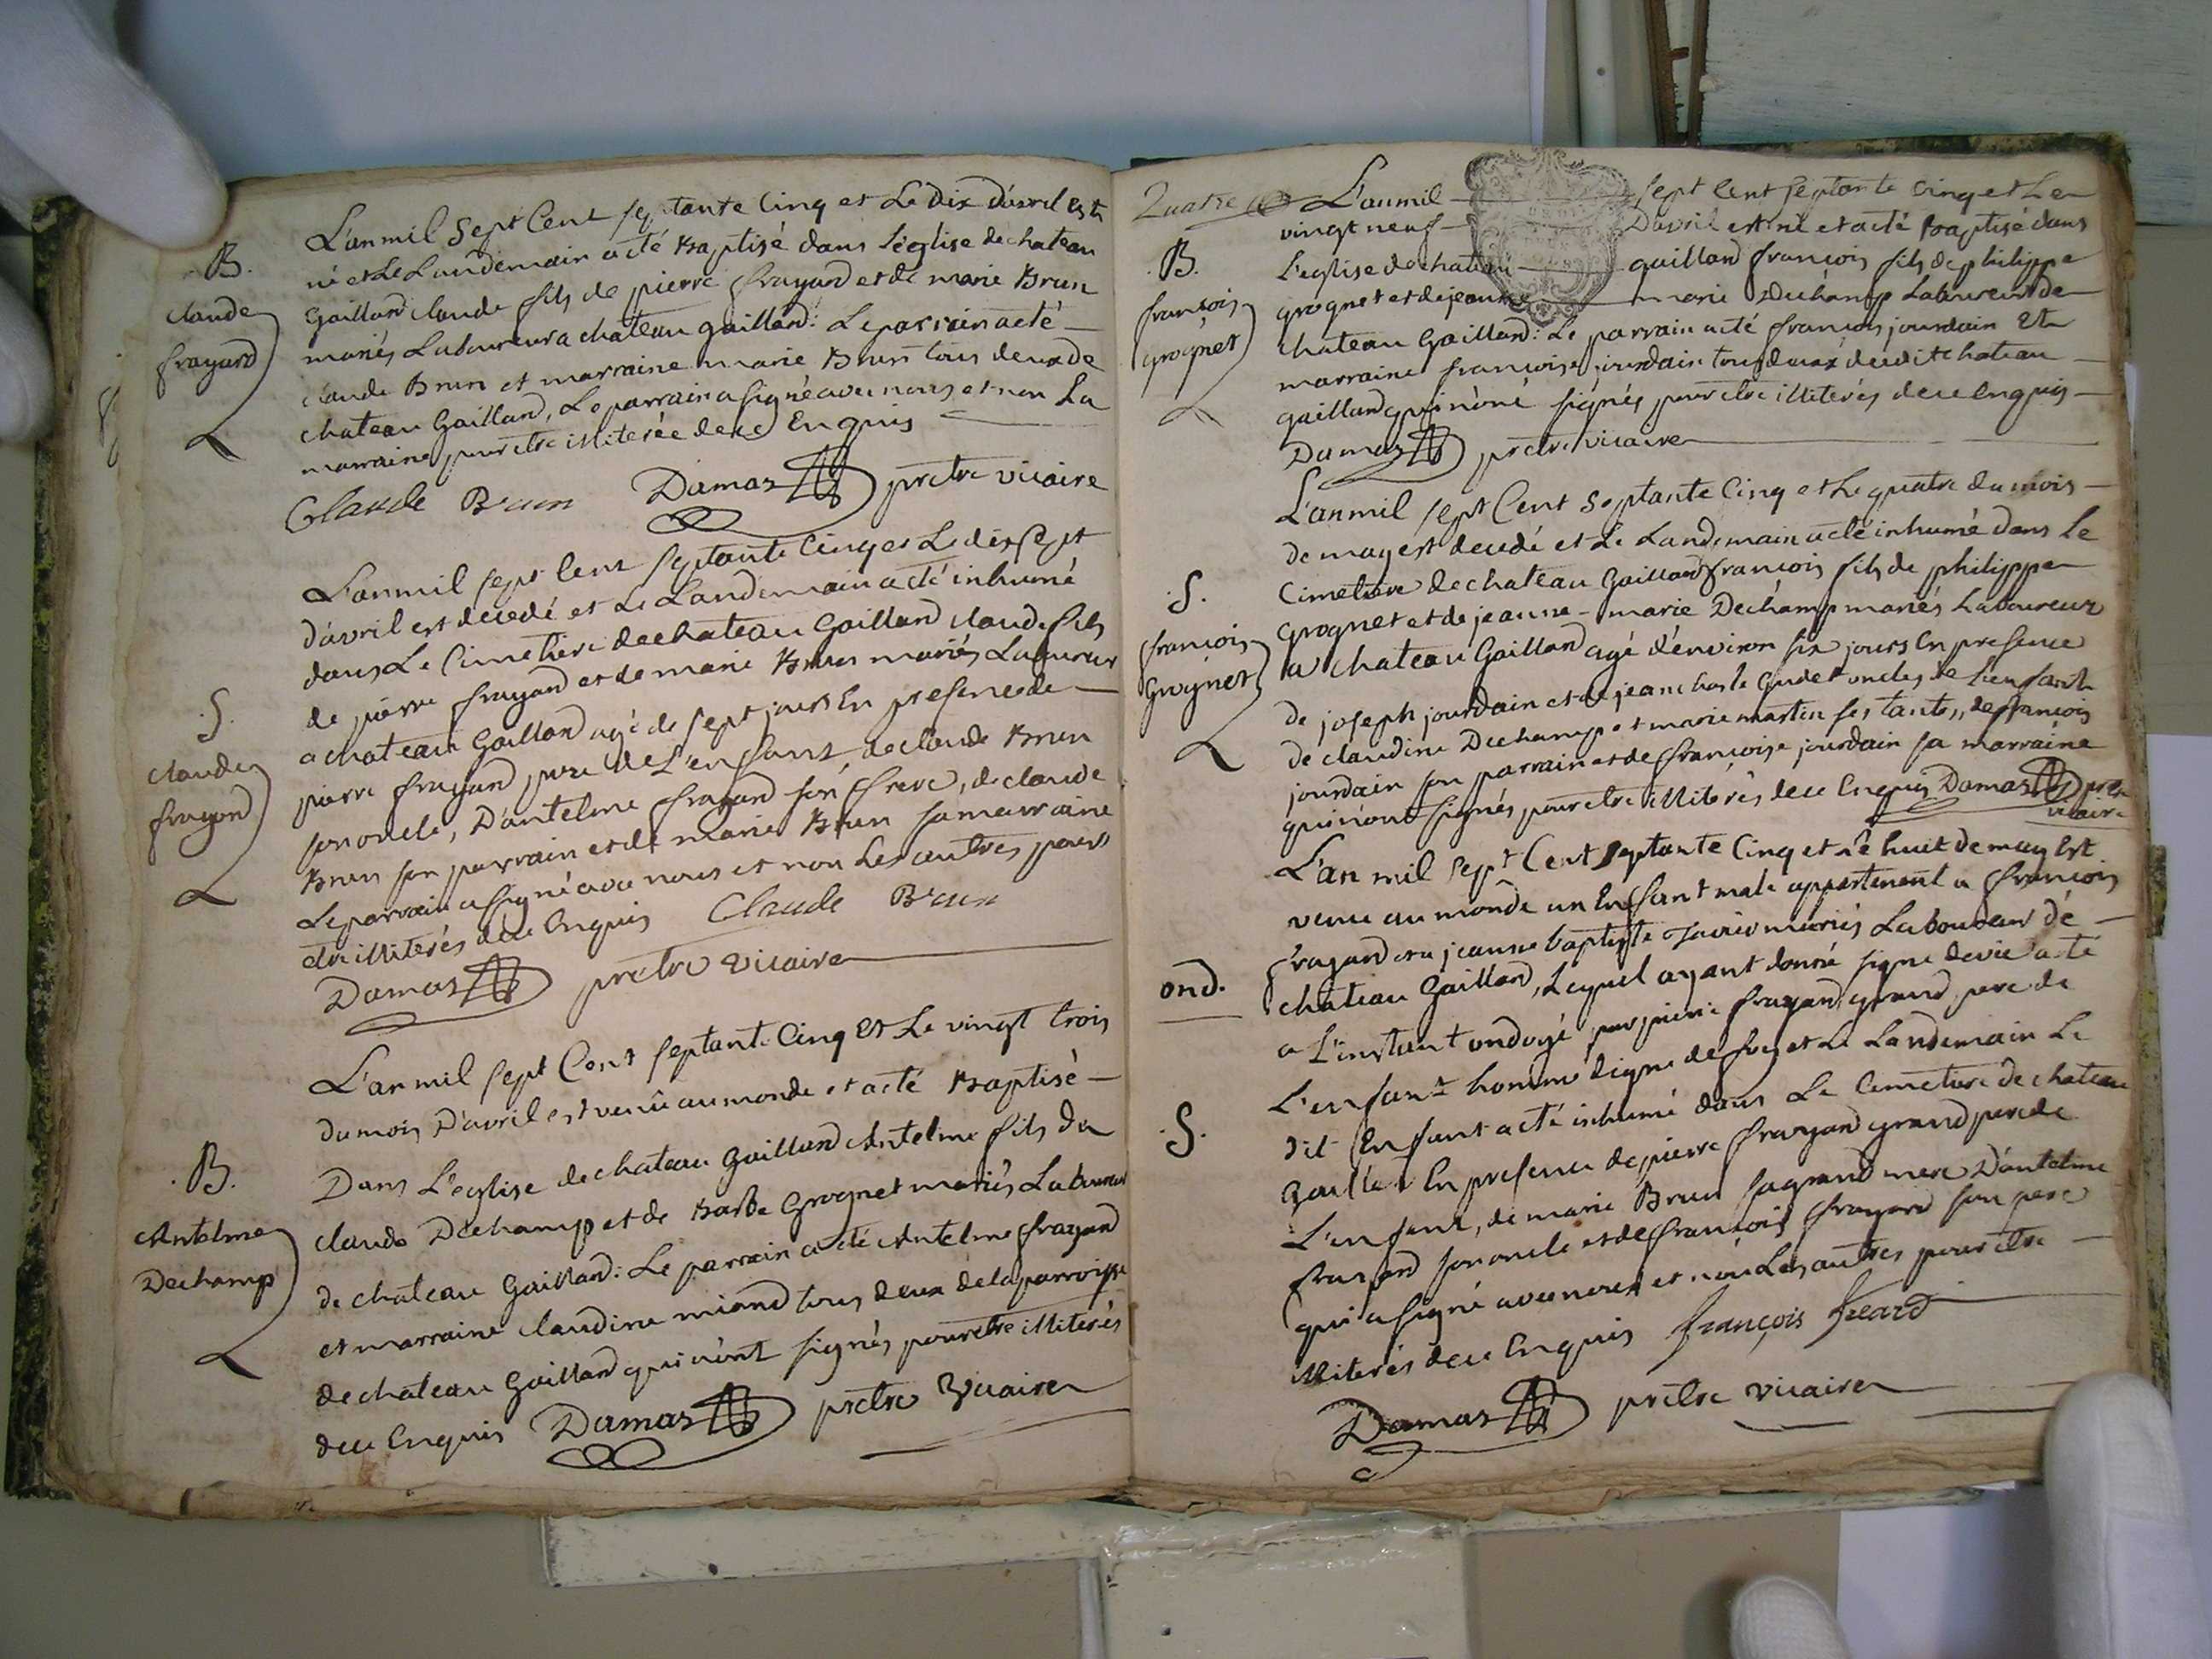 B.
claude
frayard
L'an mil Sept Cent septante Cinq et Le Dix d'avril est
né et Le Landemain a eté Baptisé dans L'eglise de chateau
Gaillard claude fils de pierre frayard et de marie Brun
mariés Laboureur a chateau gaillard: Le parrain a eté
claude Brun et marraine marie Brun tous deux de
chateau Gaillard, Le parrain a signé avec nous et non La
marraine pour etre illiterée de ce Enquis
Claude Brun Damas prêtre vicaire
S.
claude
frayard
L'an mil sept Cent septante Cinq et Le dix sept
d'avril est decedé et Le Landemain a eté inhumé
dans Le Cimetiere de chateau Gaillard claude fils
de pierre frayard et de marie Brun mariés Laboureur
a chateau Gaillard agé de sept jours En presence de
pierre frayard pere de L'enfant, de claude Brun
son oncle, D'antelme frayard son frere, de claude
Brun son parrain et de marie Brun sa marraine
Le parrain a signé avec nous et non Les autres pour
etre illiterés de ce Enquis Claude Brun
Damas prêtre vicaire
B.
Antelme
Dechamp
L'an mil sept Cent septante Cinq Et Le vingt trois
du mois D'avril est venû au monde et a eté Baptisé
Dans L'eglise de chateau Gaillard Antelme fils de
claude Dechamp et de Barbe Grognet mariés Laboureur
de chateau Gaillard: Le parrain a eté Antelme frayard
et marraine claudine miand tous deux de la parroisse
de chateau Gaillard qui n'ont signés pour etre illiterés
de ce Enquis Damas prêtre Vicaire
Quatre
B.
francois
grognet
L'an mil sept Cent septante Cinq et Le
vingt neuf D'avril est né et a eté Baptisé dans
L'eglise de chateau gaillard francois fils de philippe
grognet et de jeanne marie Dechamp Laboureur de
chateau Gaillard: Le parrain a eté francois jourdain Et
marraine francoise jourdain tous deux de dit chateau
gaillard qui n'ont signés pour etre illiterés de ce Enquis
Damas prêtre vicaire
S.
francois
Grognet
L'an mil sept Cent Septante Cinq et Le quatre du mois
de may est decedé et Le Landemain a eté inhumé dans Le
Cimetiere de chateau Gaillard francois fils de philippe
grognet et de jeanne-marie Dechamp mariés Laboureur
a chateau Gaillard agé d'environ six jours En presence
de joseph jourdain et de jean charle Gudet oncles de L'enfant
de claudine Dechamp et marie martin ses tantes, de francois
jourdain son parrain et de francoise jourdain sa marraine
qui n'ont signés pour etre illiterés de ce Enquis Damas prêtre
vicaire
ond.
S.
L'an mil Sept Cent septante Cinq et Le huit de may Est
venu au monde un Enfant male appartenant a francois
frayard et a jeanne baptiste mariés Laboureur de
chateau Gaillard, Lequel ayant donné signe de vie a eté
a L'instant ondoyé par pierre frayard grand pere de
L'enfant homme digne de foy et Le Landemain Le
dit Enfant a eté inhumé dans Le Cimetiere de chateau
Gaillard En presence de pierre frayard grand pere de
L'enfant, de marie Brun sa grand mere D'antelme
frayard son oncle et de francois frayard son pere
qui a signé avec nous et non Les autres pour etre
illiterés de ce Enquis françois
Damas prêtre vicaire